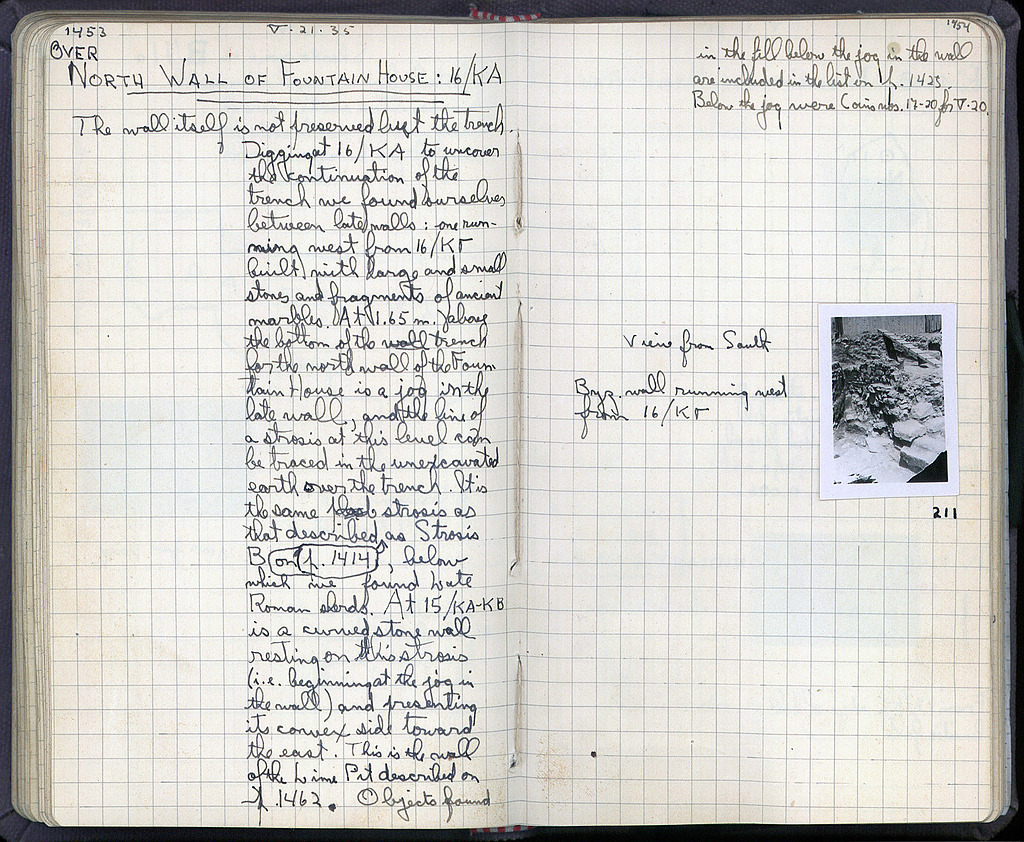 1453
V·21·35
OVER
NORTH WALL OF FOUNTAIN HOUSE: 16/KA
The wall itself is not preserved but the trench.
Digging at 16/KA to uncover
the continuation of the
trench we found ourselves
between late walls: one run-
ning west from 16/KΓ
built with large and small
stones and fragments of ancient
marbles. At 1.65 m. above
the bottom of the wall trench
for the north wall of the Foun
tain House is a jog in the
late wall, and the line of
a strosis at this level can
be traced in the unexcavated
earth over the trench. It is
the same strosis as
that described as Strosis
B on p. 1414, below
which we found Late
Roman sherds. At 15/KA-KB
is a curved stone wall
resting on this strosis
(i.e. beginning at the jog in
the wall) and presenting
its convex side toward
the east. This is the wall
of the Lime Pit described on
p. 1462. Objects found
1454
in the fill below the jog in the wall
are included in the list on p. 1423
Below the jog were Coins nos. 17-20 for V·20.
View from South
Byz. wall running west
from 16/KΓ
211